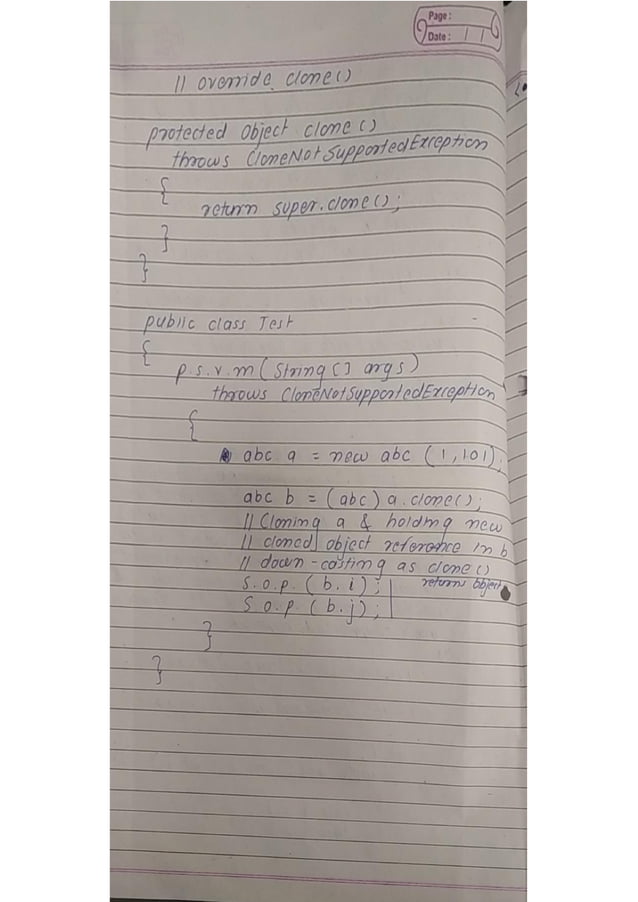 Page:
Date: / /
// override clone()
protected Object clone()
throws CloneNotSupportedException
{
return super.clone();
}
}
public class Test
{
p.s.v.m (String [] args)
throws CloneNotSupportedException
{
abc a = new abc (1,101);
abc b = (abc) a.clone();
// Cloning a & holding new
// cloned object reference in b
// down-casting as clone()
returns object
S.o.p. (b.i);
S.o.p. (b.j);
}
}